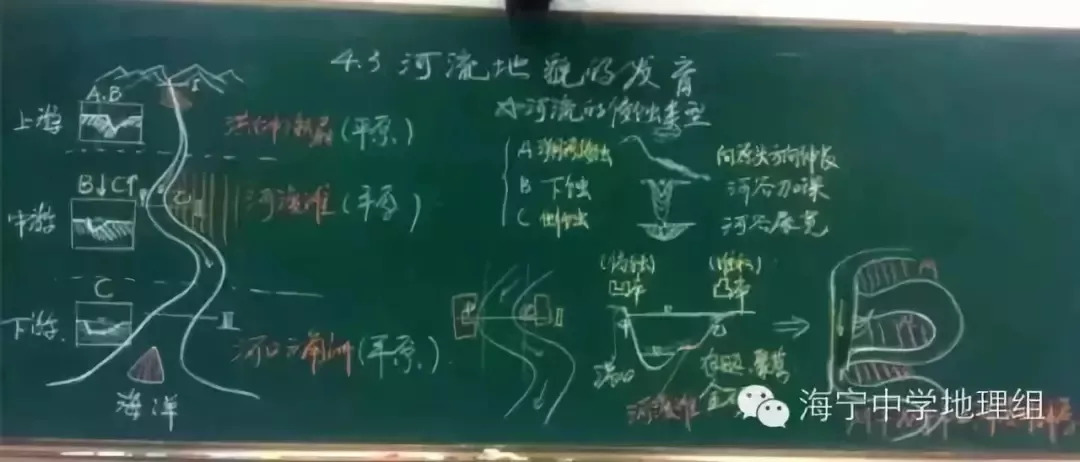 4.3 河流地貌的发育
A.B
上游
洪积扇(平原)
☆河流的侵蚀类型
A 溯源侵蚀
向源头方向伸长
B 下蚀
河谷加深
C 侧蚀
河谷展宽
B↓C↑
中游
河漫滩(平原)
C
下游
河口三角洲(平原)
海洋
(侵蚀)
凹岸
(堆积)
凸岸
港口
河漫滩
海宁中学地理组